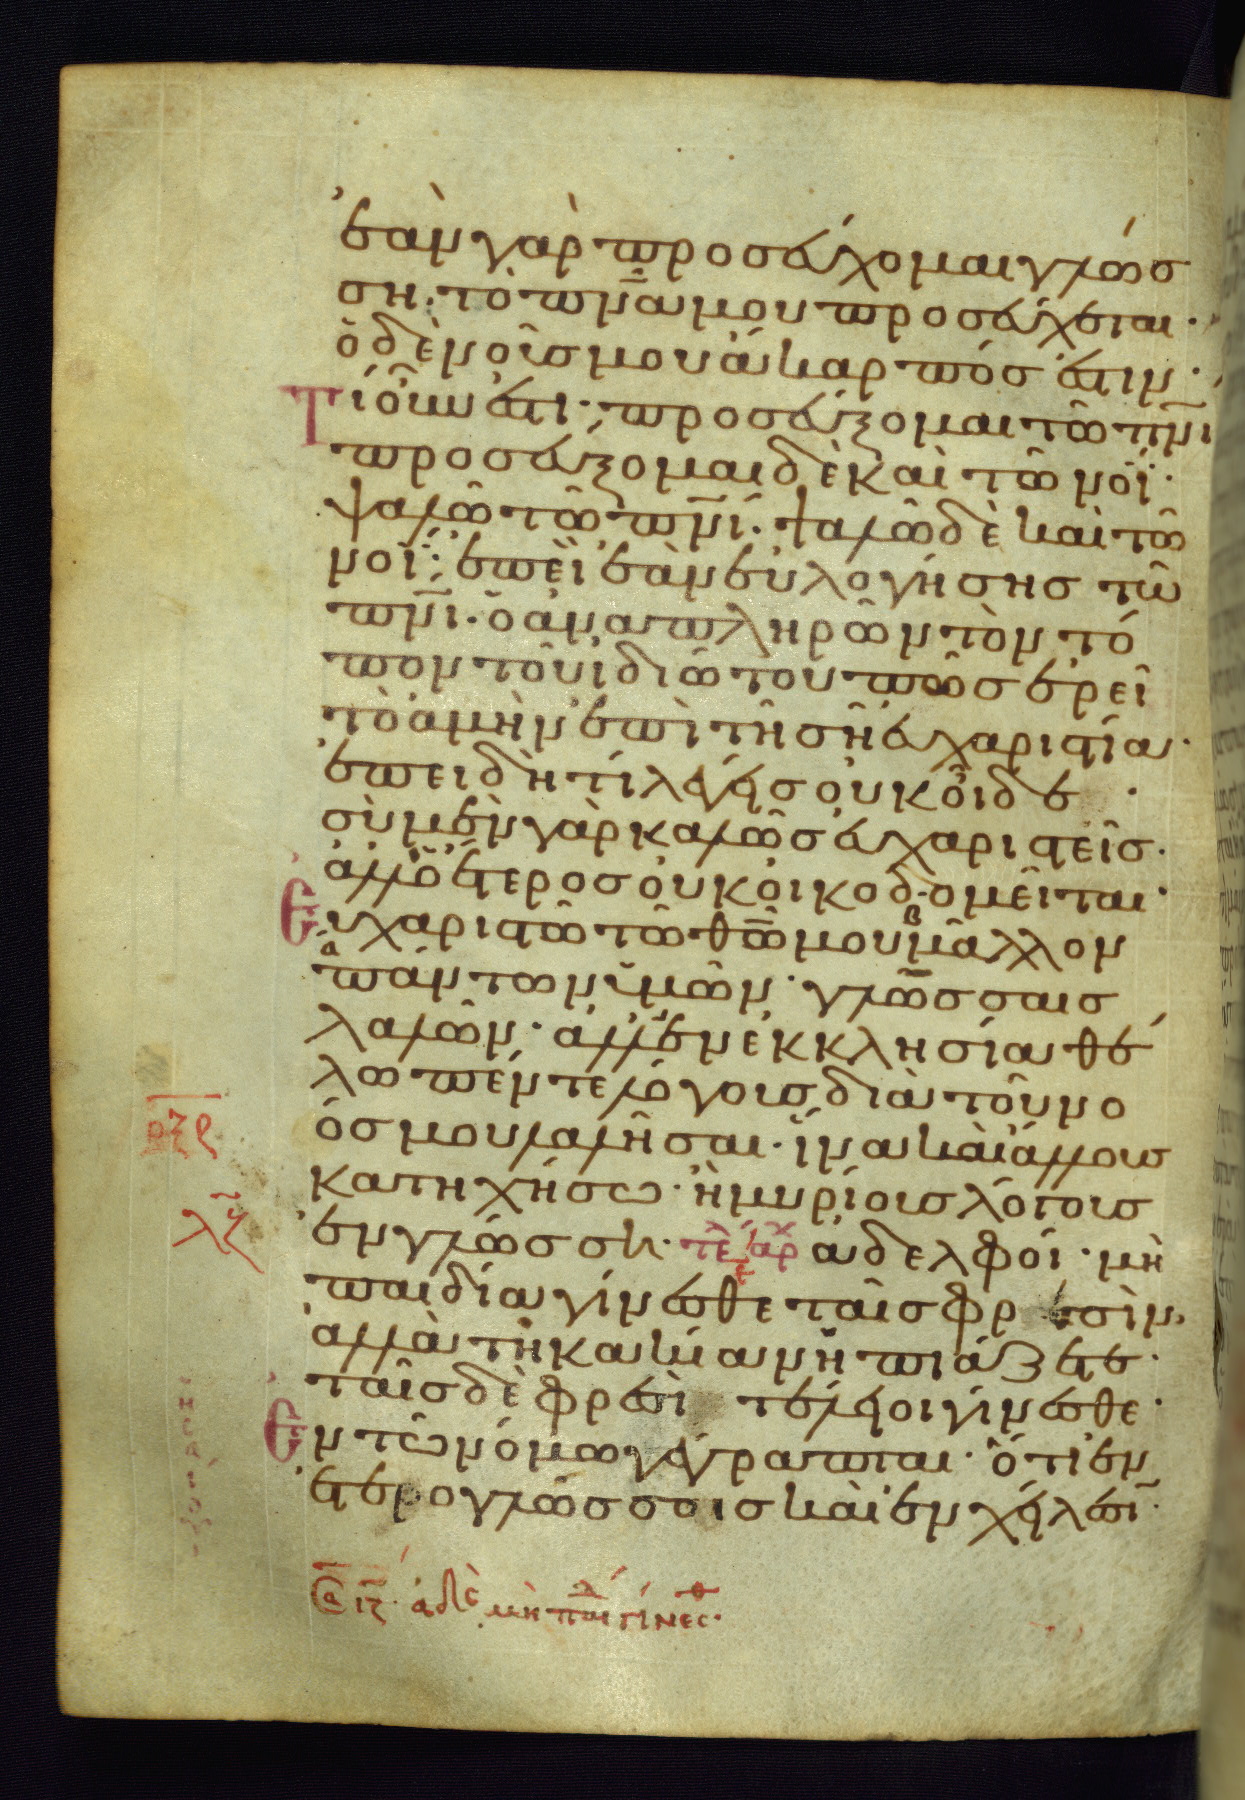 ἐὰν γὰρ προσεύχομαι γλώσ
ση· τὸ πν̅α μου προσεύχεται·
ὁ δὲ νοῦς μου ἄκαρπός ἐστιν·
Τί οὖν ἐστι· προσεύξομαι τῶ πν̅ι
προσεύξομαι δὲ καὶ τῶ νοΐ·
ψαλῶ τῶ πν̅ι· ψαλῶ δὲ καὶ τῶ
νοΐ· ἐπεὶ ἐὰν εὐλογήσης τῶ
πν̅ι· ὁ ἀναπληρῶν τὸν τό
πον τοῦ ἰδιώτου πῶς ἐρεῖ
τὸ ἀμὴν ἐπὶ τῆ σῆ εὐχαριστία·
ἐπειδὴ τί λέγεις οὐκ οἶδε·
σὺ μὲν γὰρ καλῶς εὐχαριστεῖς·
ἀλλ' ὁ ἕτερος οὐκ οἰκοδομεῖται·
Εὐχαριστῶ τῶ θ̅ω̅ μου μᾶλλον
πάντων ὑμῶν· γλώσσαις
λαλῶν· ἀλλ' ἐν ἐκκλησία θέ
λω πέντε λόγους διὰ τοῦ νο
ός μου λαλῆσαι· ἵνα καὶ ἄλλους
κατηχήσω· ἢ μυρίους λόγους
ἐν γλώσση· τε αρχ ἀδελφοί· μὴ
παιδία γίνεσθε ταῖς φρεσὶν,
ἀλλὰ τῆ κακία νηπιάζετε·
ταῖς δὲ φρεσὶ τέλειοι γίνεσθε·
Ἐν τῶ νόμω γέγραπται· ὅτι ἐν
ἑτερογλώσσοις καὶ ἐν χείλεσι·
λζ
ιζ· ἀδε μὴ παι γίνεσθ·